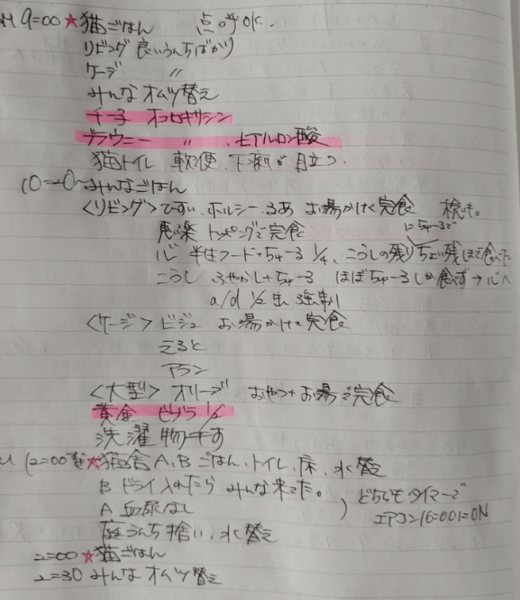 AM 9=00 ★猫ごはん 点呼OK.
リビング 良いうんちばかり
ケージ 〃
みんな オムツ替え
チー子 オフロキサシン
ブラウニー 〃 、ヒアルロン酸
猫トイレ 軟便、下痢が目立つ.
10=0〜みんなごはん
<リビング> てすい、ホルシー、るあ お湯かけて完食
恵楽 トッピングで完食
心 半生フード+ちゅーる 1/4、こうしの残り ちょい残しまで食べた
にちゅーるで
こうし ふやかし+ちゅーる ほぼちゅーるしか食べず→心へ
a/d 1/2缶 強制
<ケージ> ビジュ お湯かけて完食
えると
アラン
<大型> オリーブ おやつ+お湯で完食
黄金 1/2
洗濯物干す
12=00 ★猫舎A、Bごはん、トイレ、床、水替
B ドライ入れたら みんな来てた。
A 血尿なし
どちらもタイマーで
エアコン16=00 1=ON
庭うんち拾い、水替え
2=00 ★猫ごはん
2=30 みんなオムツ替え